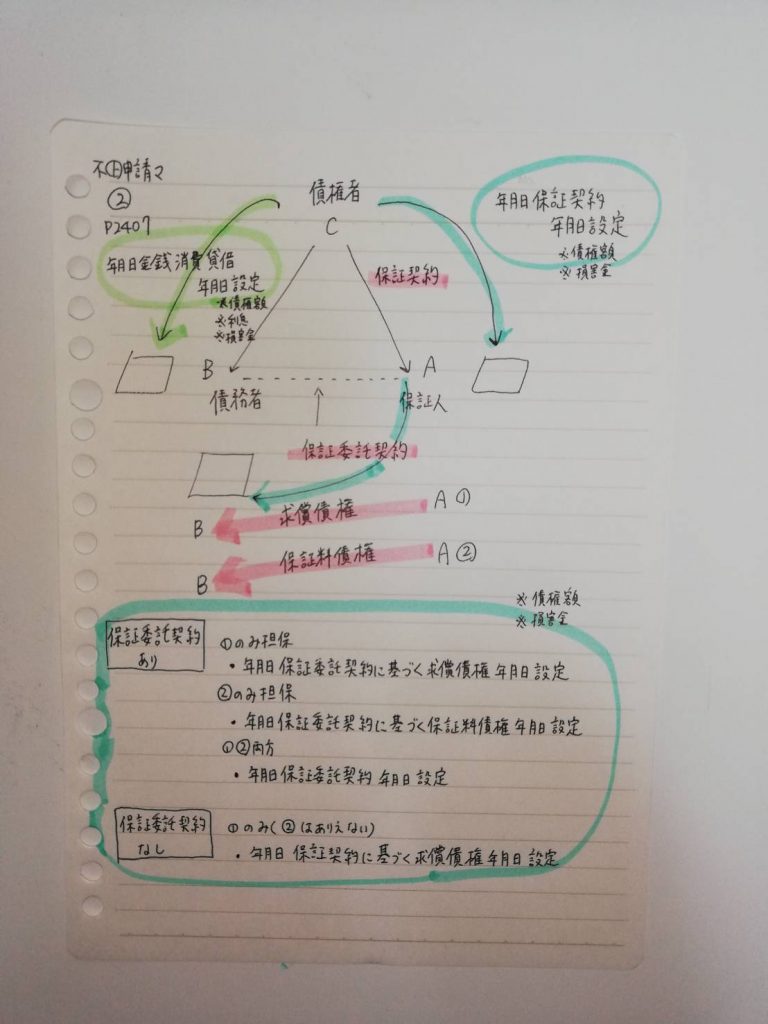 不㊤申請マ
②
P2407
債権者
C
年月日保証契約
年月日設定
※債権額
※損害金
年月日金銭消費貸借
年月日設定
※債権額
※利息
※損害金
保証契約
B
A
債務者
保証人
保証委託契約
A①
求償債権
B
A②
保証料債権
B
※債権額
※損害金
保証委託契約
あり
①のみ担保
・年月日保証委託契約に基づく求償債権年月日設定
②のみ担保
・年月日保証委託契約に基づく保証料債権年月日設定
①②両方
・年月日保証委託契約年月日設定
保証委託契約
なし
①のみ(②はありえない)
・年月日保証契約に基づく求償債権年月日設定